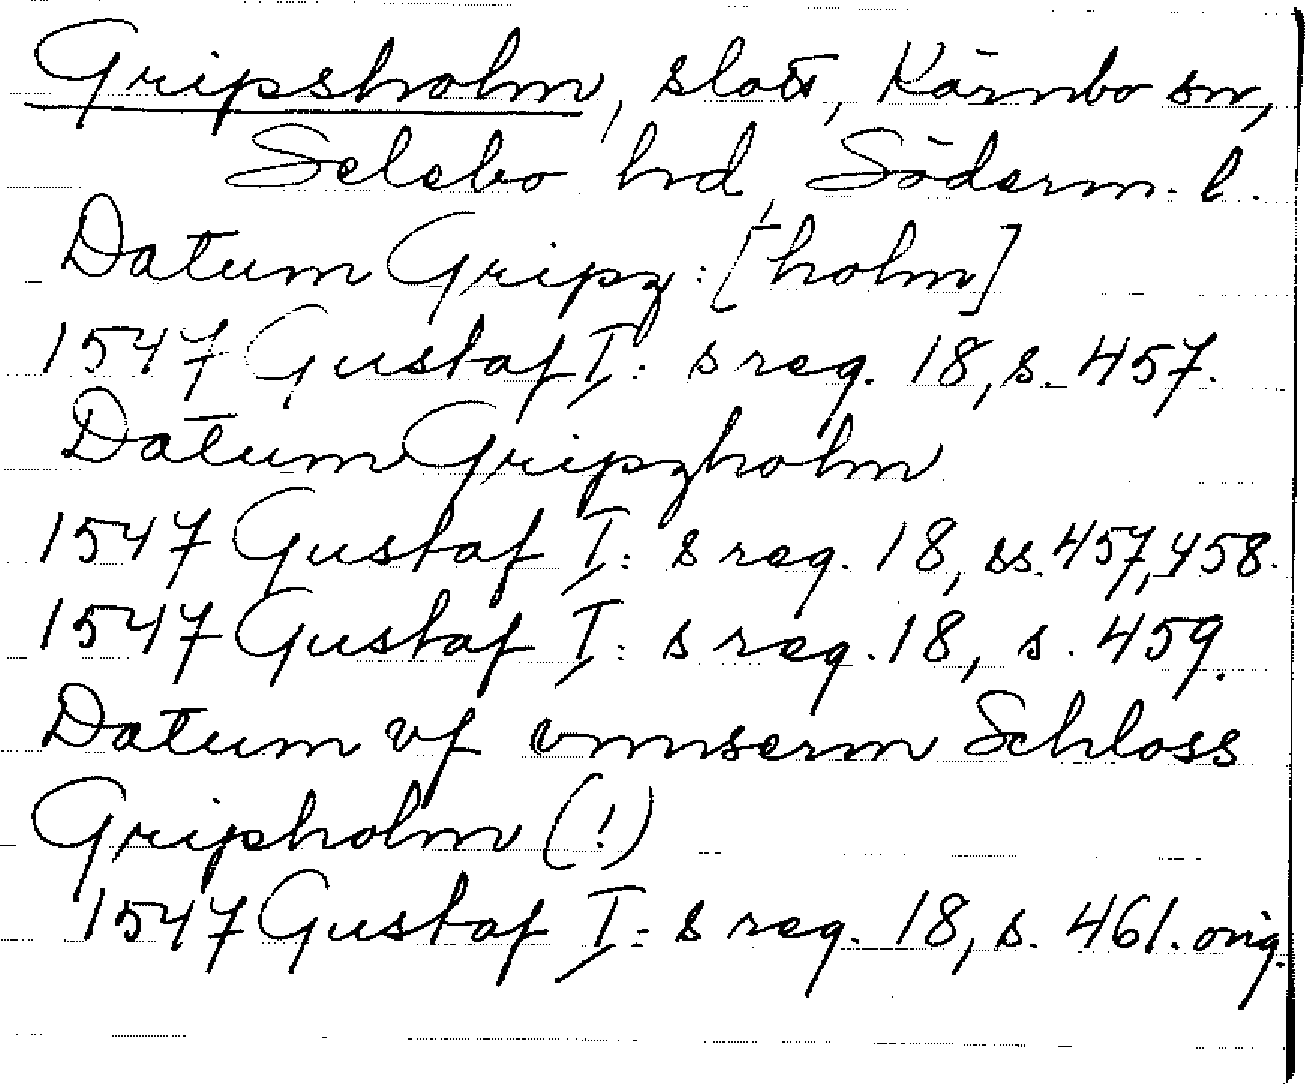 Gripsholm, slott, Kärnbo sn,
Selebo hd, Söderm. l.
Datum Gripz: [holm]
1547 Gustaf I: s reg. 18, s. 457.
Datum Gripzholm
1547 Gustaf I: s reg. 18, ss. 457, 458.
1547 Gustaf I: s reg. 18, s. 459.
Datum vf vnnserm Schloss
Gripholm (!)
1547 Gustaf I: s reg. 18, s. 461. orig.